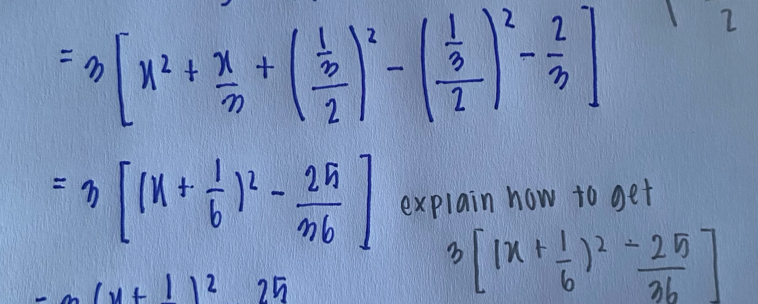 = 3 [ x² + x/3 + ( (1/3)/2 )² - ( (1/3)/2 )² - 2/3 ]
2
= 3 [ (x + 1/6)² - 25/36 ]
explain how to get
3 [ (x + 1/6)² - 25/36 ]